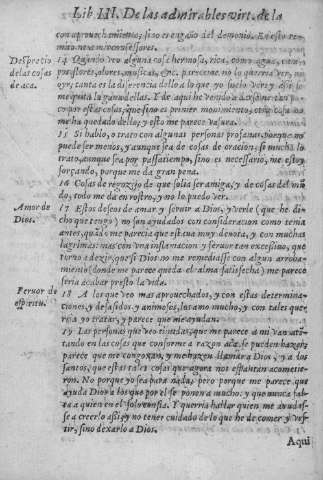 Lib. III. De las admirables virt. de la
con aprouechamiento; sino es engaño del demonio. En esto remi-
Desprecio
de las cosas
de aca.
14 Quando veo alguna cosa hermosa, rica, como agua, campos,
flores, olores, musicas, &c. pareceme no lo querria ver, ni
oyr; tanta es la diferencia dello a lo que yo suelo ver; y assi se
me quita la gana dellas. Y de aqui he venido a darseme tan poco
por estas cosas, que sino es primer mouimiento, otra cosa no
me ha quedado dello; y esto me parece vasura.
15 Si hablo, o trato con algunas personas profanas, porque no
puede ser menos, y aunque sea de cosas de oracion, si mucho lo
trato, aunque sea por passatiempo, sino es necessario, me estoy
forçando, porque me da gran pena.
16 Cosas de regozijo de que solia ser amiga, y de cosas del mundo,
todo me da en rostro, y no lo puedo ver.
Amor de
Dios.
17 Estos desseos de amar y seruir a Dios, y verle (que he dicho
que tengo) no son ayudados con consideracion como tenia
antes, quando me parecia que estaua muy deuota, y con muchas
lagrimas: mas con vna inflamacion y feruor tan excessiuo, que
torno a dezir, que si Dios no me remediasse con algun arrobamiento
(donde me parece queda el alma satisfecha) me parece
seria acabar presto la vida.
Feruor de
espiritu.
18 A los que veo mas aprouechados, y con estas determinaciones,
y desasidos, y animosos, los amo mucho, y con tales querria
yo tratar, y parece que me ayudan.
19 Las personas que veo timidas, que me parece a mi van atentando
en las cosas que conforme a razon acá se pueden hazer,
parece que me congoxan, y me hazen llamar a Dios, y a los
santos, que estas tales cosas que agora nos espantan acometieron.
No porque yo sea para nada, pero porque me parece que
ayuda Dios a los que por el se ponen a mucho; y que nunca falta
a quien en el solo confia. Y querria hallar quien me ayudasse
a creerlo assi, y no tener cuidado de lo que he de comer y vestir,
sino dexarlo a Dios.
Aqui